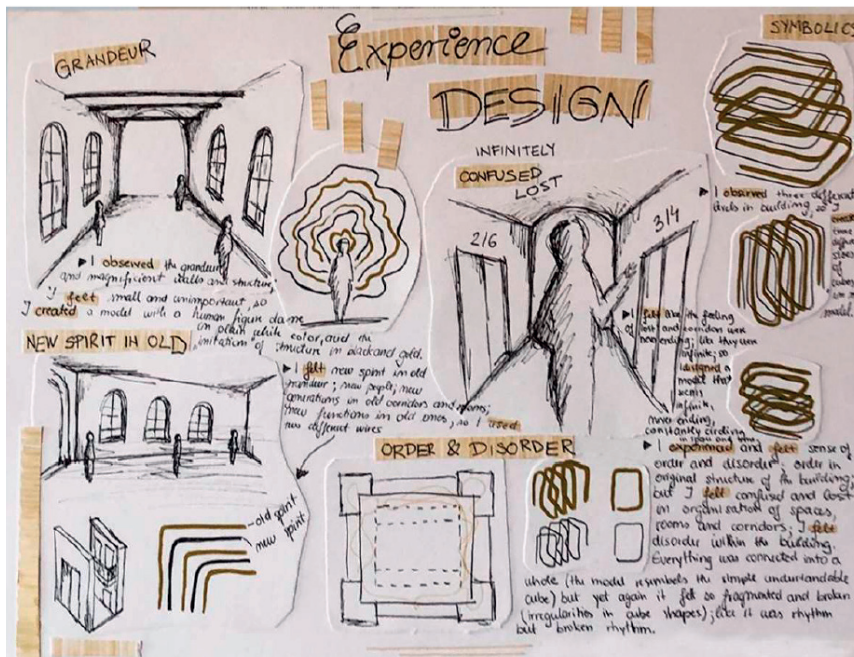 Experience
DESIGN
GRANDEUR
▶ I observed the grandeur
and magnificient walls and structure,
I felt small and unimportant, so
I created a model with a human figure
in plain white color, and the
imitation of structure in black and gold.
NEW SPIRIT IN OLD
▶ I felt new spirit in old
grandeur; new people, new
generations in old corridors and rooms;
new functions in old ones, so I used
two different wires
old spirit
new spirit
INFINITELY
CONFUSED
LOST
2/6
3/4
▶ I felt like the feeling
of lost and corridors were
never ending; like they were
infinite; so
I designed a
model that
seems
infinite,
never ending,
constantly circling
in space and time.
SYMBOLICS
▶ I observed three different
levels in building, so I
three
different
sizes
of
cubes
model.
ORDER & DISORDER
▶ I experienced and felt sense of
order and disorder: order in
original structure of the building;
but I felt confused and lost
in organisation of spaces,
rooms and corridors; I felt
disorder within the building.
Everything was connected into a
whole (the model resymbels the simple understandable
cube) but yet again it felt so fragmented and broken
(irregularities in cube shapes); like it was rhythm
but broken rhythm.